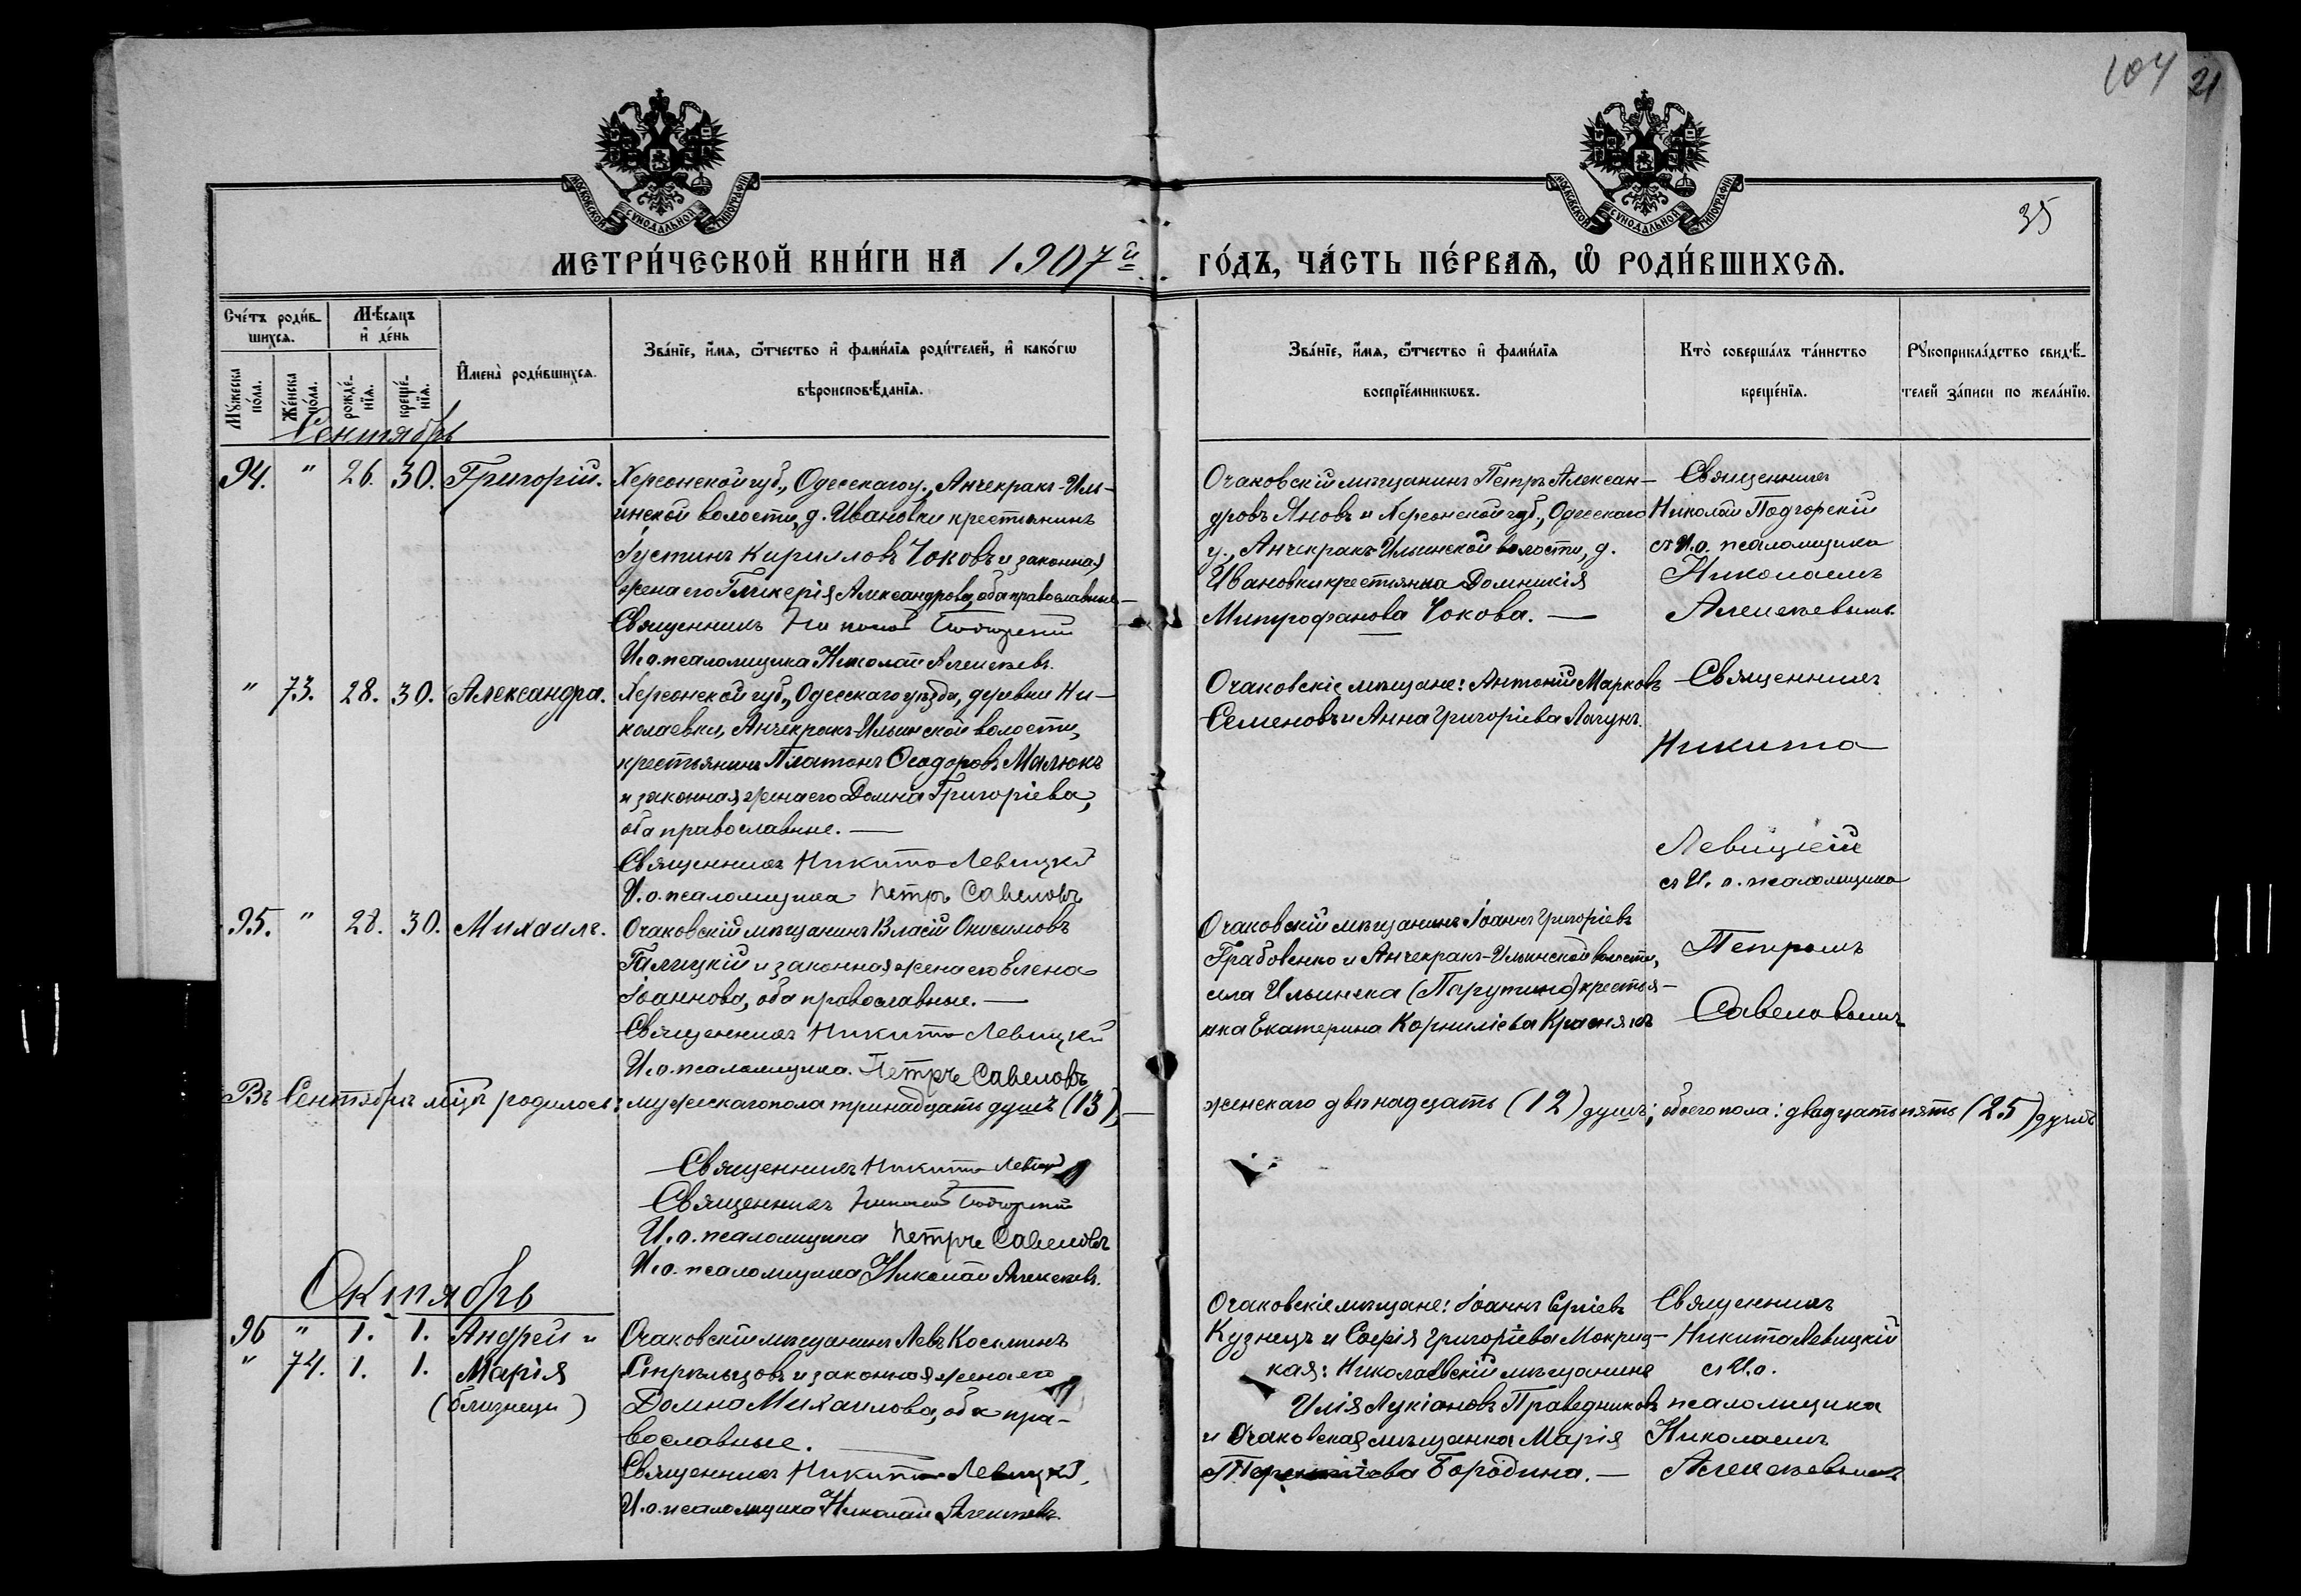 104
21
35
МОСКОВСКОЙ СУНОДАЛЬНОЙ ТИПОГРАФІИ
МОСКОВСКОЙ СУНОДАЛЬНОЙ ТИПОГРАФІИ
МЕТРИ́ЧЕСКОЙ КНИ́ГИ НА 1907й
ГО́ДЪ, ЧА́СТЬ ПЕ́РВАѦ, Ѡ РОДИ́ВШИХСѦ.
Сче́тъ роди́вшихсѧ.
Мꙋ́жеска по́ла.
Же́нска по́ла.
Мѣ́сѧцъ и҆ де́нь
рожде́нїѧ.
креще́нїѧ.
И҆мена̀ роди́вшихсѧ.
Зва́нїе, и҆́мѧ, ѻ҆́тчество и҆ фами́лїѧ роди́телей, и҆ како́гѡ
вѣроисповѣ́данїѧ.
Зва́нїе, и҆́мѧ, ѻ҆́тчество и҆ фами́лїѧ
воспрїе́мникѡвъ.
Кто̀ соверша́лъ та́инство
креще́нїѧ.
Рꙋкоприкла́дство свидѣ́телей за́писи по жела́нїю.
Сентябрь
94. " 26. 30. Григорій.
Херсонской губ., Одесскаго у., Анчекрак-Иль-
инской волости, д. Ивановки крестьянинъ
Іустинъ Кирилловъ Чоковъ и законная
жена его Гликерія Александрова, оба православные.—
Священникъ Николай Подгорскій
И.о. псаломщика Николай Алексѣевъ.
Очаковскій мѣщанинъ Петръ Алексан-
дровъ Яновъ и Херсонской губ., Одесскаго
у., Анчекрак-Ильинской волости, д.
Ивановки крестьянка Домникія
Митрофанова Чокова. —
Священникъ
Николай Подгорскій
съ И.о. псаломщика
Николаемъ
Алексѣевымъ.
" 73. 28. 30. Александра.
Херсонской губ., Одесскаго уѣзда, деревни Ни-
колаевки, Анчекрак-Ильинской волости,
крестьянинъ Платонъ Ѳеодоровъ Малюкъ
и законная жена его Домна Григоріева,
оба православные. —
Священникъ Никита Левицкій
И.о. псаломщика Петръ Савеловъ
Очаковскіе мѣщане: Антоній Марковъ
Семеновъ и Анна Григоріева Лагунъ.
Священникъ
Никита
Левицкій
съ И.о. псаломщика
Петромъ
Савеловымъ
95. " 28. 30. Михаилъ.
Очаковскій мѣщанинъ Власій Онисимовъ
Галицкій и законная жена его Елена
Іоаннова, оба православные. —
Священникъ Никита Левицкій
И.о. псаломщика. Петръ Савеловъ
Очаковскій мѣщанинъ Іоаннъ Григоріевъ
Грабовенко и Анчекрак-Ильинской волости,
села Ильинска (Парутино) крестья-
нка Екатерина Корниліева Краснякъ
Въ Сентябрѣ мѣцѣ родилось: мужескаго пола тринадцать душъ (13), —
женскаго двѣнадцать (12) душъ; обоего пола: двадцать пять (25) душъ
Священникъ Никита Левицкій
Священникъ Николай Подгорскій
И.о. псаломщика Петръ Савеловъ
И.о. псаломщика Николай Алексѣевъ.
Октябрь
96 " 1. 1. Андрей и
" 74. 1. 1. Марія
(близнецы)
Очаковскій мѣщанинъ Левъ Косьминъ
Стрѣльцовъ и законная жена его
Домна Михаилова, оба пра-
вославные. —
Священникъ Никита Левицкій.
И.о. псаломщика Николай Алексѣевъ.
Очаковскіе мѣщане: Іоаннъ Сергіевъ
Кузнецъ и Софія Григоріева Мокриц-
кая: Николаевскій мѣщанинъ
Илія Лукіановъ Праведниковъ
и Очаковская мѣщанка Марія
Терентіева Бородина. —
Священникъ
Никита Левицкій
съ И.о.
псаломщика
Николаемъ
Алексѣевымъ